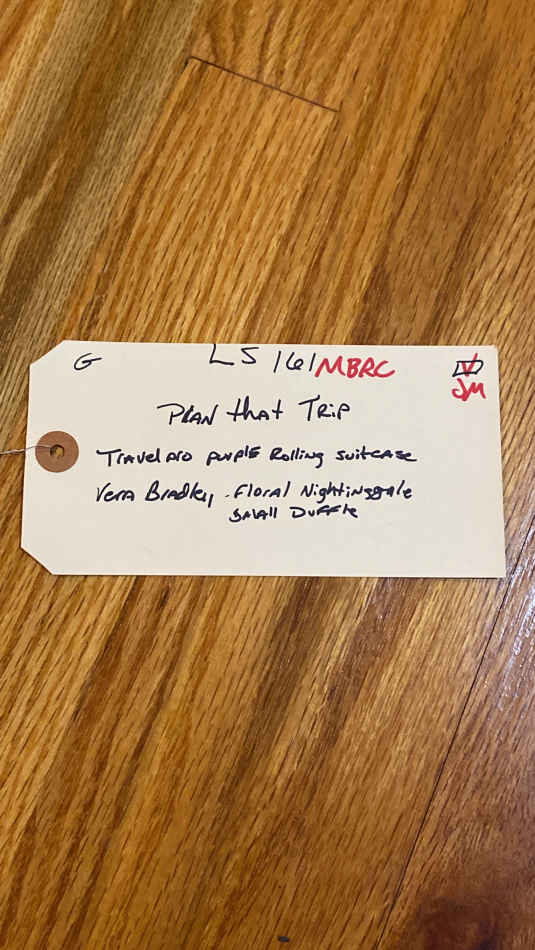 G LS 161 MBRC
JM
Plan that Trip
Travelpro purple Rolling suitcase
Vera Bradley - Floral Nightinggale
Small Duffle